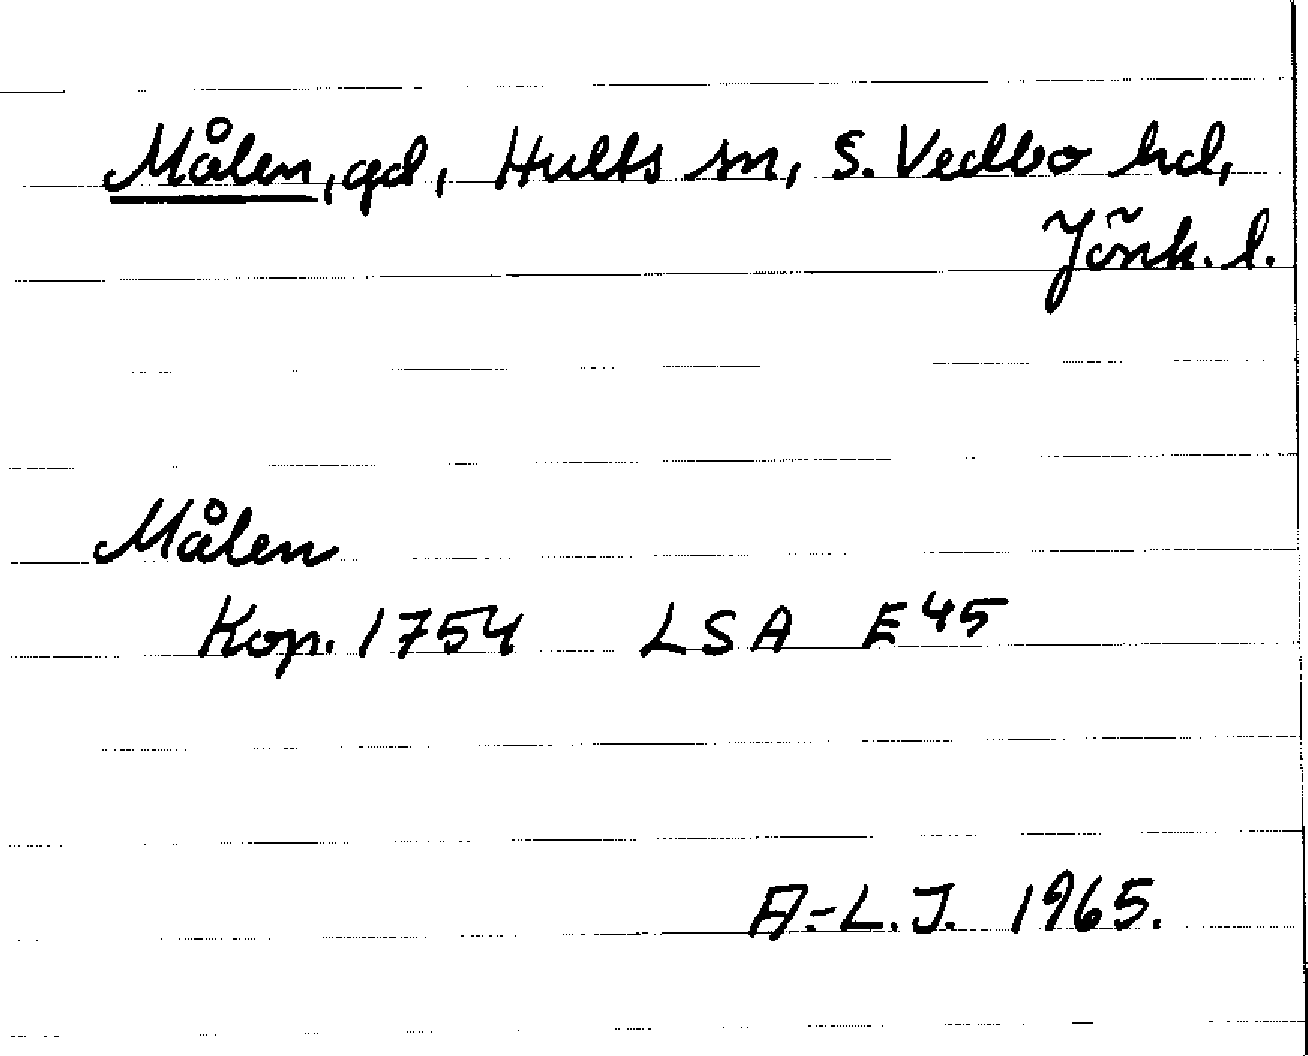 Målen, gd, Hults sn, S. Vedbo hd,
Jönk. l.
Målen
Kop. 1754 LSA E45
A.-L. J. 1965.